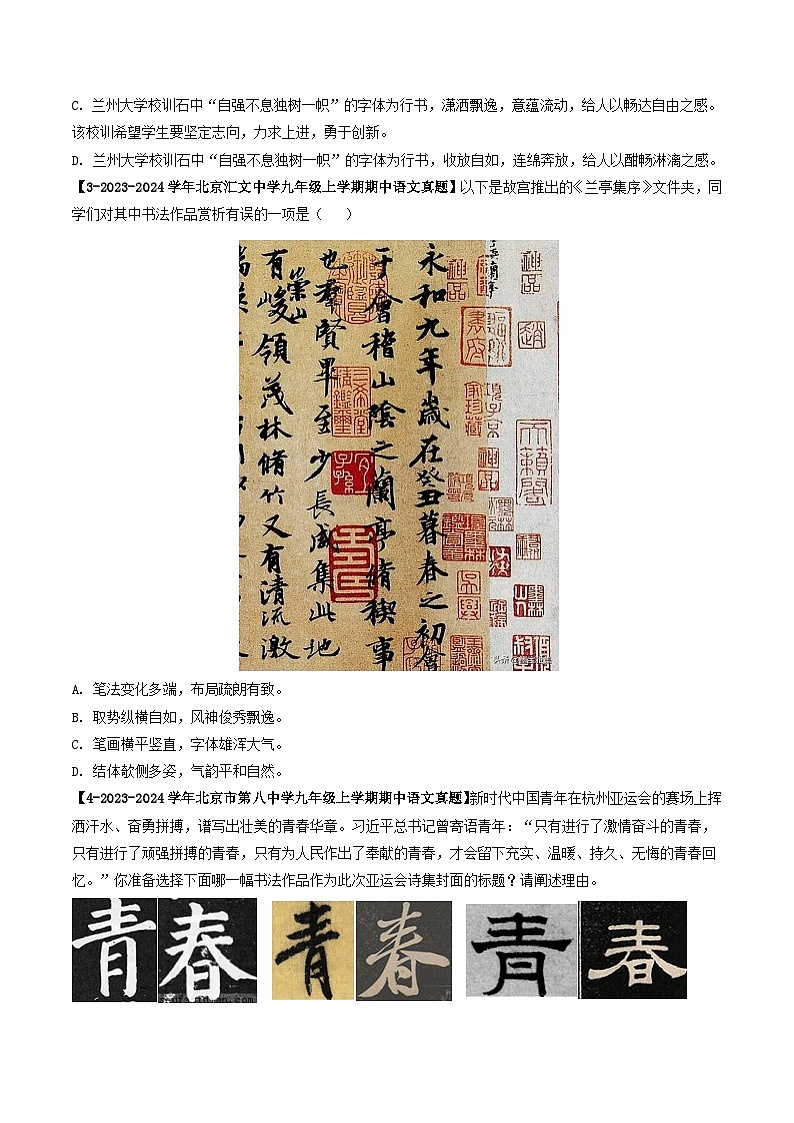 C. 兰州大学校训石中“自强不息独树一帜”的字体为行书，潇洒飘逸，意蕴流动，给人以畅达自由之感。
该校训希望学生要坚定志向，力求上进，勇于创新。
D. 兰州大学校训石中“自强不息独树一帜”的字体为行书，收放自如，连绵奔放，给人以酣畅淋漓之感。
【3-2023-2024学年北京汇文中学九年级上学期期中语文真题】以下是故宫推出的《兰亭集序》文件夹，同
学们对其中书法作品赏析有误的一项是（ ）
永和九年歲在癸丑暮春之初會
于會稽山陰之蘭亭脩稧事
也羣賢畢至少長咸集此地
有崇山峻領茂林脩竹又有清流激
A. 笔法变化多端，布局疏朗有致。
B. 取势纵横自如，风神俊秀飘逸。
C. 笔画横平竖直，字体雄浑大气。
D. 结体欹侧多姿，气韵平和自然。
【4-2023-2024学年北京市第八中学九年级上学期期中语文真题】新时代中国青年在杭州亚运会的赛场上挥
洒汗水、奋勇拼搏，谱写出壮美的青春华章。习近平总书记曾寄语青年：“只有进行了激情奋斗的青春，
只有进行了顽强拼搏的青春，只有为人民作出了奉献的青春，才会留下充实、温暖、持久、无悔的青春回
忆。”你准备选择下面哪一幅书法作品作为此次亚运会诗集封面的标题？请阐述理由。
青春 青春 青春